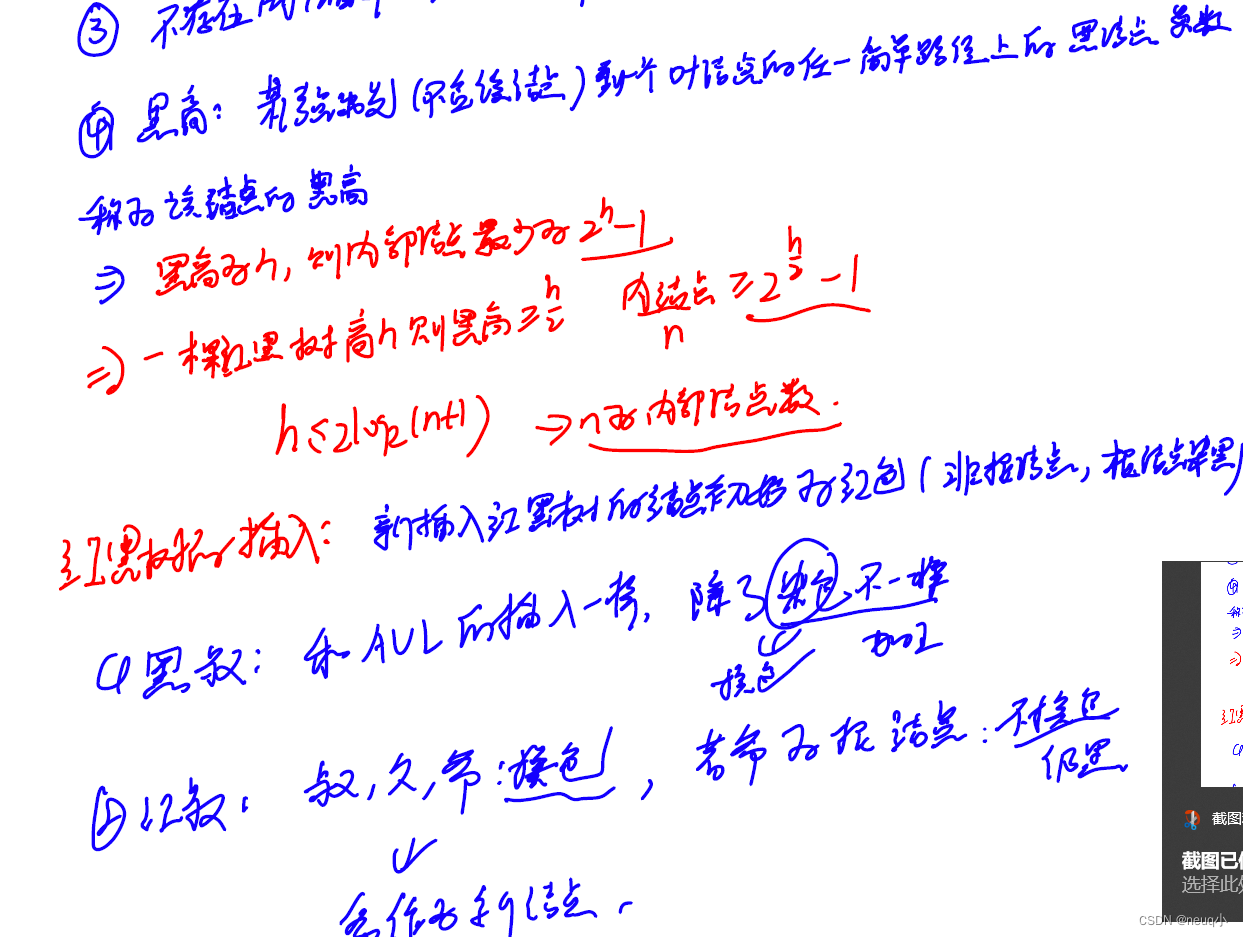 ③ 不存在
④ 黑高：某结点出发(不含该结点)到一个叶结点的任一简单路径上的黑结点总数
称为该结点的黑高
⇒ 黑高为h，则内部结点最少为 2^h-1
⇒ 一棵红黑树高h则黑高≥h/2 内结点 n ≥2^(h/2)-1
h≤2log2(n+1) → n为内部结点数.
红黑树的插入： 新插入红黑树的结点初始为红色(非根结点，根结点染黑)
黑叔： 和AVL的插入一样，除了染色不一样
换色
红叔： 叔,父,爷:换色，若爷为根结点:不换色
仍黑
爷作为新结点.
截图
截图已
选择此处
CSDN @neuq小